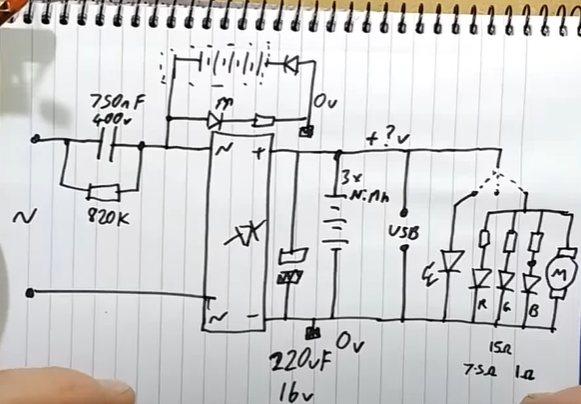 750nF
400v
0v
+?v
~
+
3x
NiMh
USB
~
820K
~
-
R
G
B
M
220uF
16v
0v
15Ω
7.5Ω 1Ω